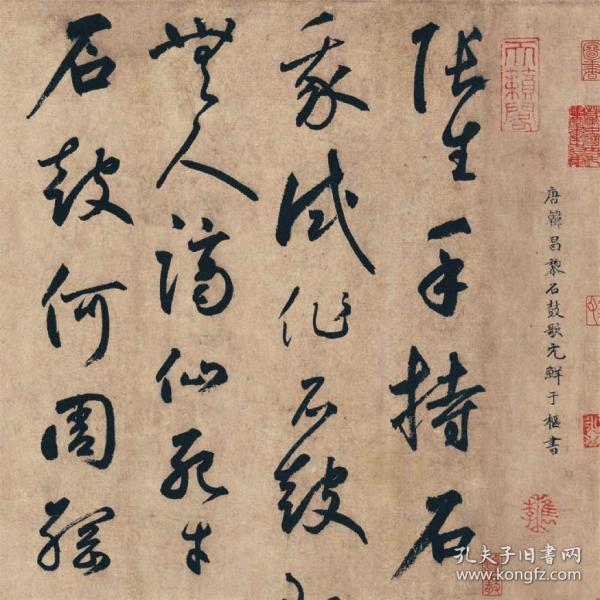 天籟閣
唐韓昌黎石鼓歌元鮮于樞書
張生手持石
我試作石鼓
無人謫仙死才
石鼓何周綱
孔夫子旧书网
www.kongfz.com